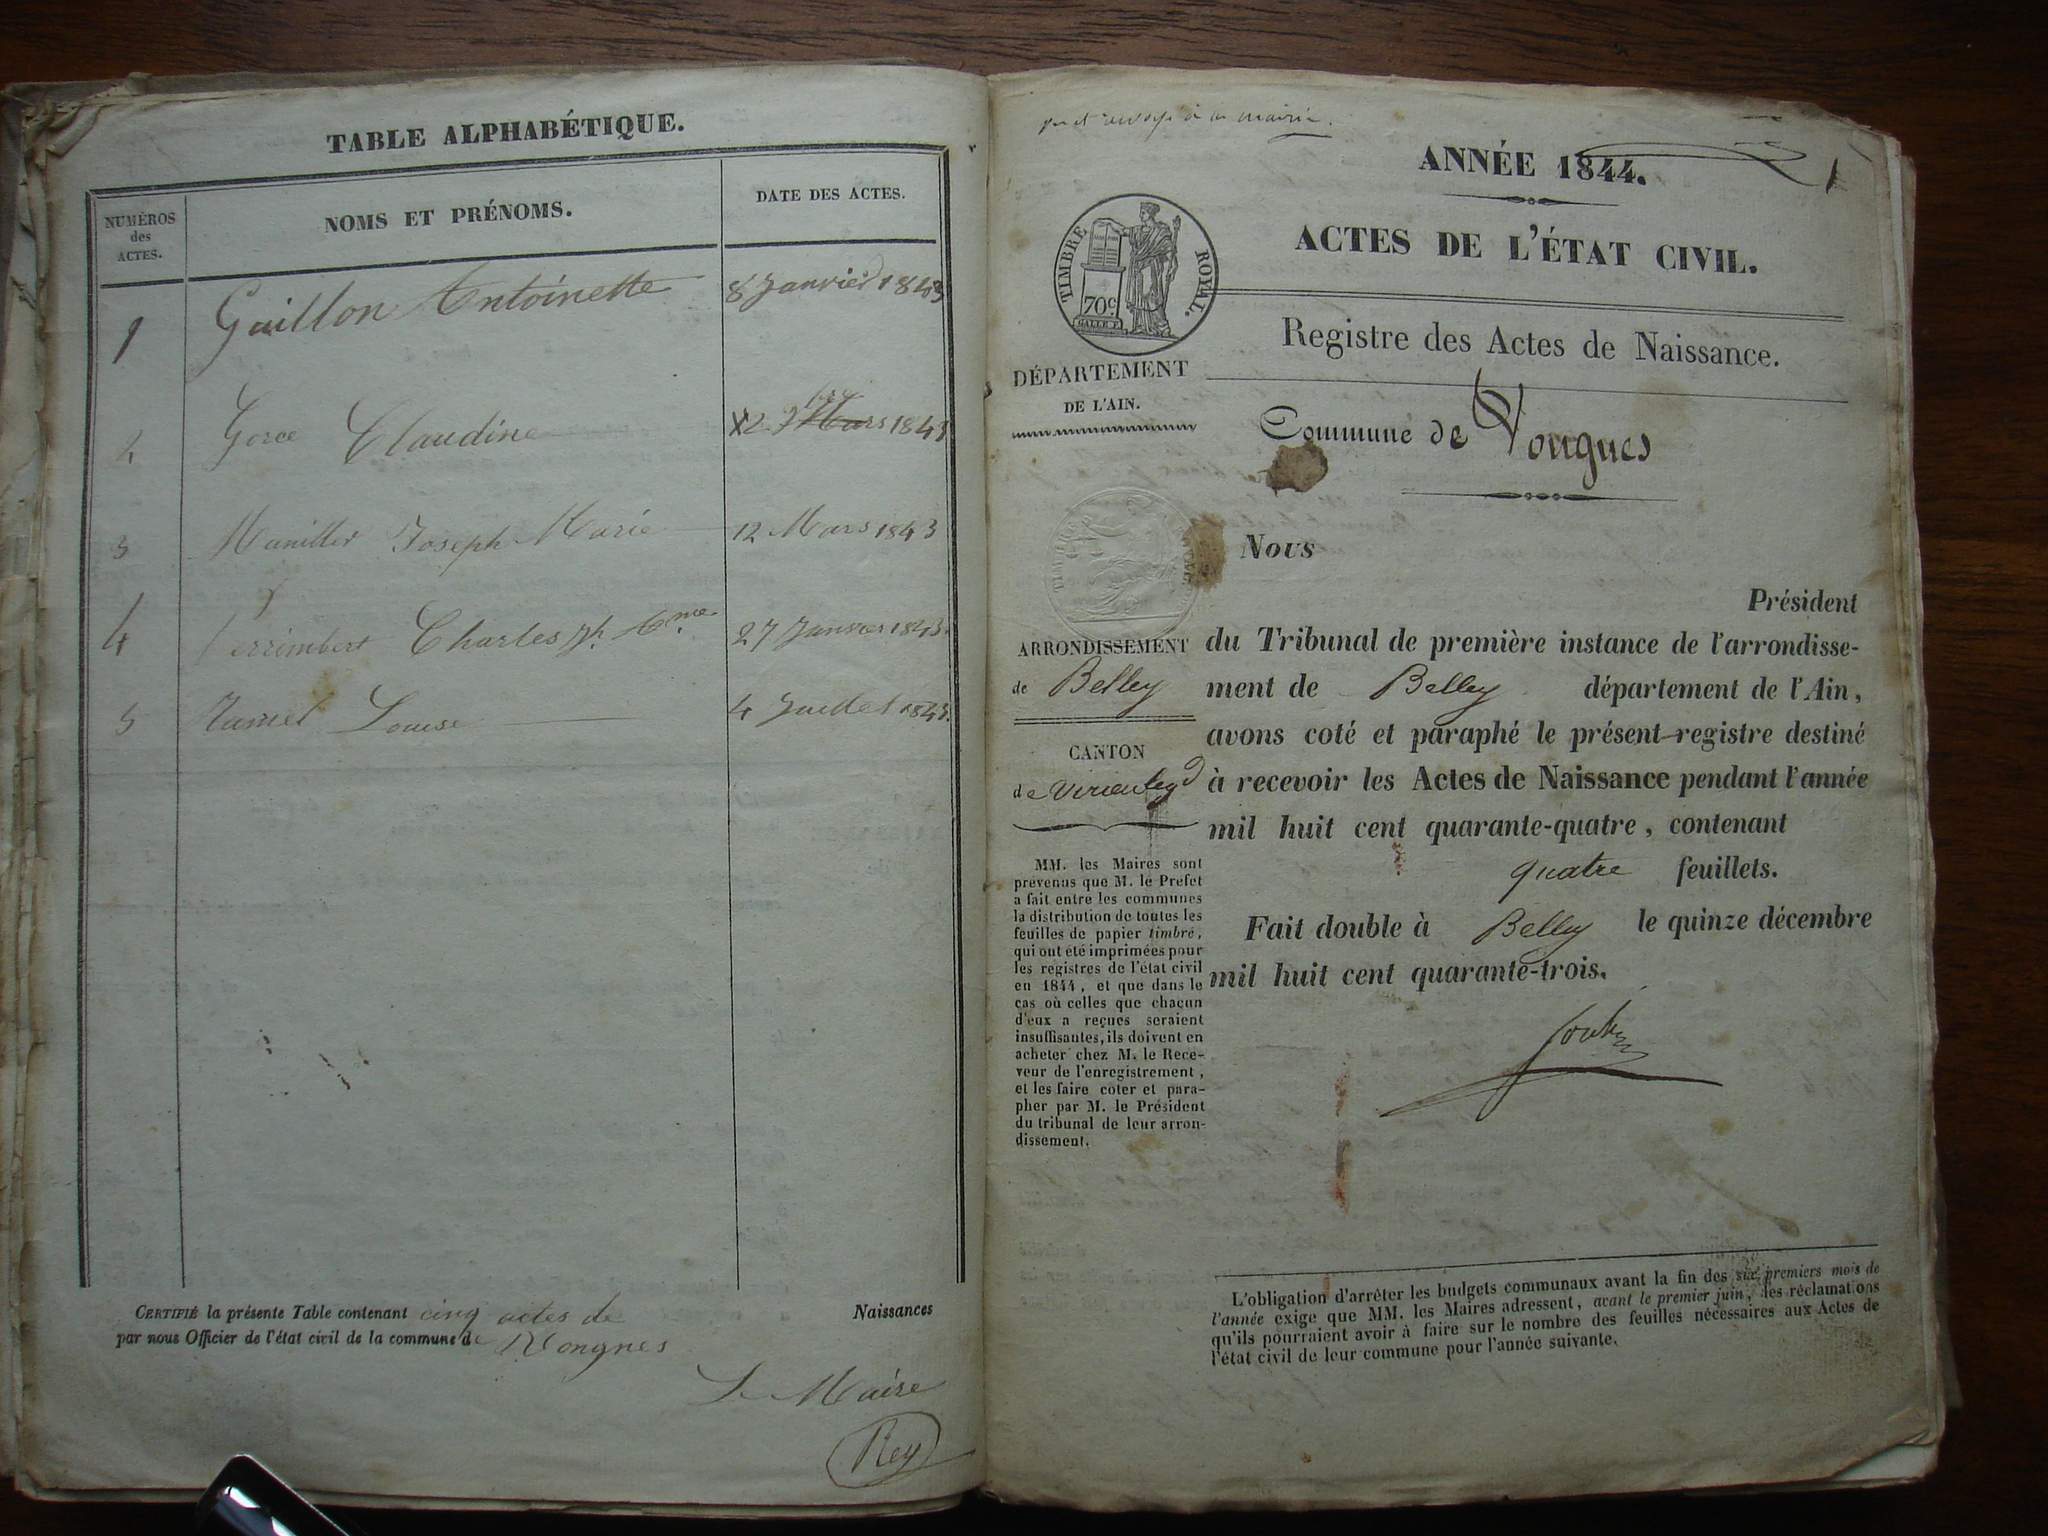 TABLE ALPHABÉTIQUE.
NUMÉROS
des
ACTES.
NOMS ET PRÉNOMS.
DATE DES ACTES.
1 Guillon Antoinette 8 Janvier 1843
2 Gorce Claudine 1843
3 Maniller Joseph Marie 12 Mars 1843
4 Perrimbert Charles Jh. 27 Janvier 1843
5 Louise 4 Juillet 1843
CERTIFIÉ la présente Table contenant cinq actes de Naissances
par nous Officier de l'état civil de la commune de Vongnes
Le Maire
Rey
à la mairie.
ANNÉE 1844.
1
ACTES DE L'ÉTAT CIVIL.
TIMBRE ROYAL.
70c
Registre des Actes de Naissance.
DÉPARTEMENT
DE L'AIN.
Commune de Vongnes
ARRONDISSEMENT
de Belley
CANTON
de Virieu le gd
MM. les Maires sont
prévenus que M. le Préfet
a fait entre les communes
la distribution de toutes les
feuilles de papier timbré,
qui ont été imprimées pour
les registres de l'état civil
en 1844, et que dans le
cas où celles que chacun
d'eux a reçues seraient
insuffisantes, ils doivent en
acheter chez M. le Rece-
veur de l'enregistrement,
et les faire coter et para-
pher par M. le Président
du tribunal de leur arron-
dissement.
Nous
Président
du Tribunal de première instance de l'arrondisse-
ment de Belley département de l'Ain,
avons coté et paraphé le présent registre destiné
à recevoir les Actes de Naissance pendant l'année
mil huit cent quarante-quatre, contenant
quatre feuillets.
Fait double à Belley le quinze décembre
mil huit cent quarante-trois.
L'obligation d'arrêter les budgets communaux avant la fin des six premiers mois de
l'année exige que MM. les Maires adressent, avant le premier juin, les réclamations
qu'ils pourraient avoir à faire sur le nombre des feuilles nécessaires aux Actes de
l'état civil de leur commune pour l'année suivante.